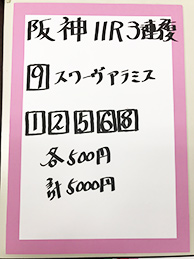 阪神11R3連複
9 スワーヴアラミス
1 2 5 6 8
各500円
計5000円